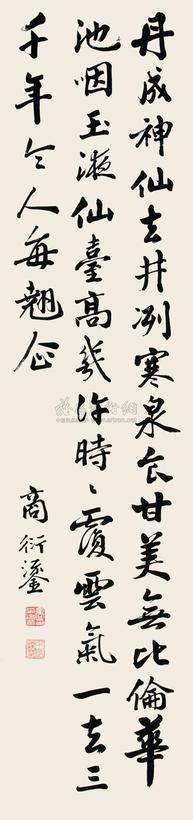 丹成神仙去井冽寒泉食甘美無比倫華
池咽玉液仙臺高幾許時〻覆雲氣一去三
千年令人每翹企
商衍鎏